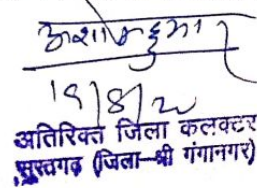 अशोक कुमार
19/8/20
अतिरिक्त जिला कलक्टर
सूरतगढ़ (जिला-श्री गंगानगर)